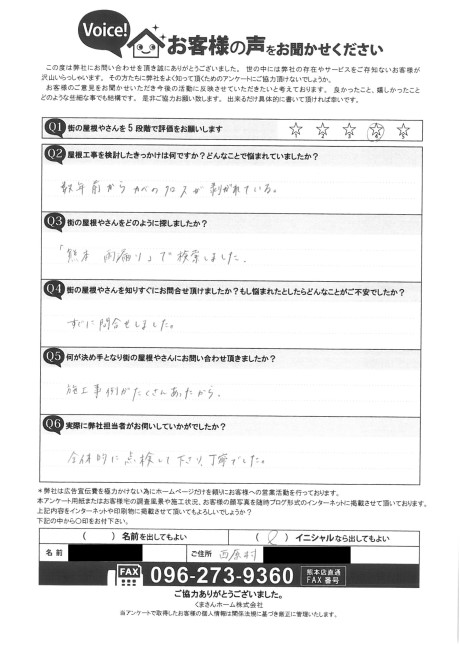 Voice!
お客様の声をお聞かせください
この度は弊社にお問い合わせを頂き誠にありがとうございました。世の中には弊社の存在やサービスをご存知ないお客様が
沢山いらっしゃいます。その方たちに弊社をよく知って頂くためのアンケートにご協力頂けないでしょうか。
お客様のご意見をお聞かせいただき今後の活動に反映させていただきたいと考えております。良かったこと、嬉しかったこと
どのような些細な事でも結構です。是非ご協力お願い致します。出来るだけ具体的に書いて頂ければ幸いです。
Q1 街の屋根やさんを5段階で評価をお願いします
1 2 3 4 5
Q2 屋根工事を検討したきっかけは何ですか?どんなことで悩まれていましたか?
数年前からカベのクロスが剥がれている。
Q3 街の屋根やさんをどのように探しましたか?
「熊本 雨漏り」で検索しました。
Q4 街の屋根やさんを知りすぐにお問合せ頂けましたか?もし悩まれたとしたらどんなことがご不安でしたか?
すぐに問合せしました。
Q5 何が決め手となり街の屋根やさんにお問い合わせ頂きましたか?
施工事例がたくさんあったから。
Q6 実際に弊社担当者がお伺いしていかがでしたか?
全体的に点検して下さり、丁寧でした。
*弊社は広告宣伝費を極力かけない為にホームページだけを頼りにお客様への営業活動を行っております。
本アンケート用紙またはお客様宅の調査風景や施工状況、お客様の顔写真を随時ブログ形式のインターネットに掲載させて頂いております。
上記内容をインターネットや印刷物に掲載させて頂いてもよろしいでしょうか?
下記の中から〇印をお付下さい。
( )名前を出してもよい ( )イニシャルなら出してもよい
名前 ご住所 西原村
FAX 096-273-9360 熊本店直通
FAX番号
ご協力ありがとうございました。
くまさんホーム株式会社
当アンケートで取得したお客様の個人情報は関係法規に基づき厳正に管理いたします。